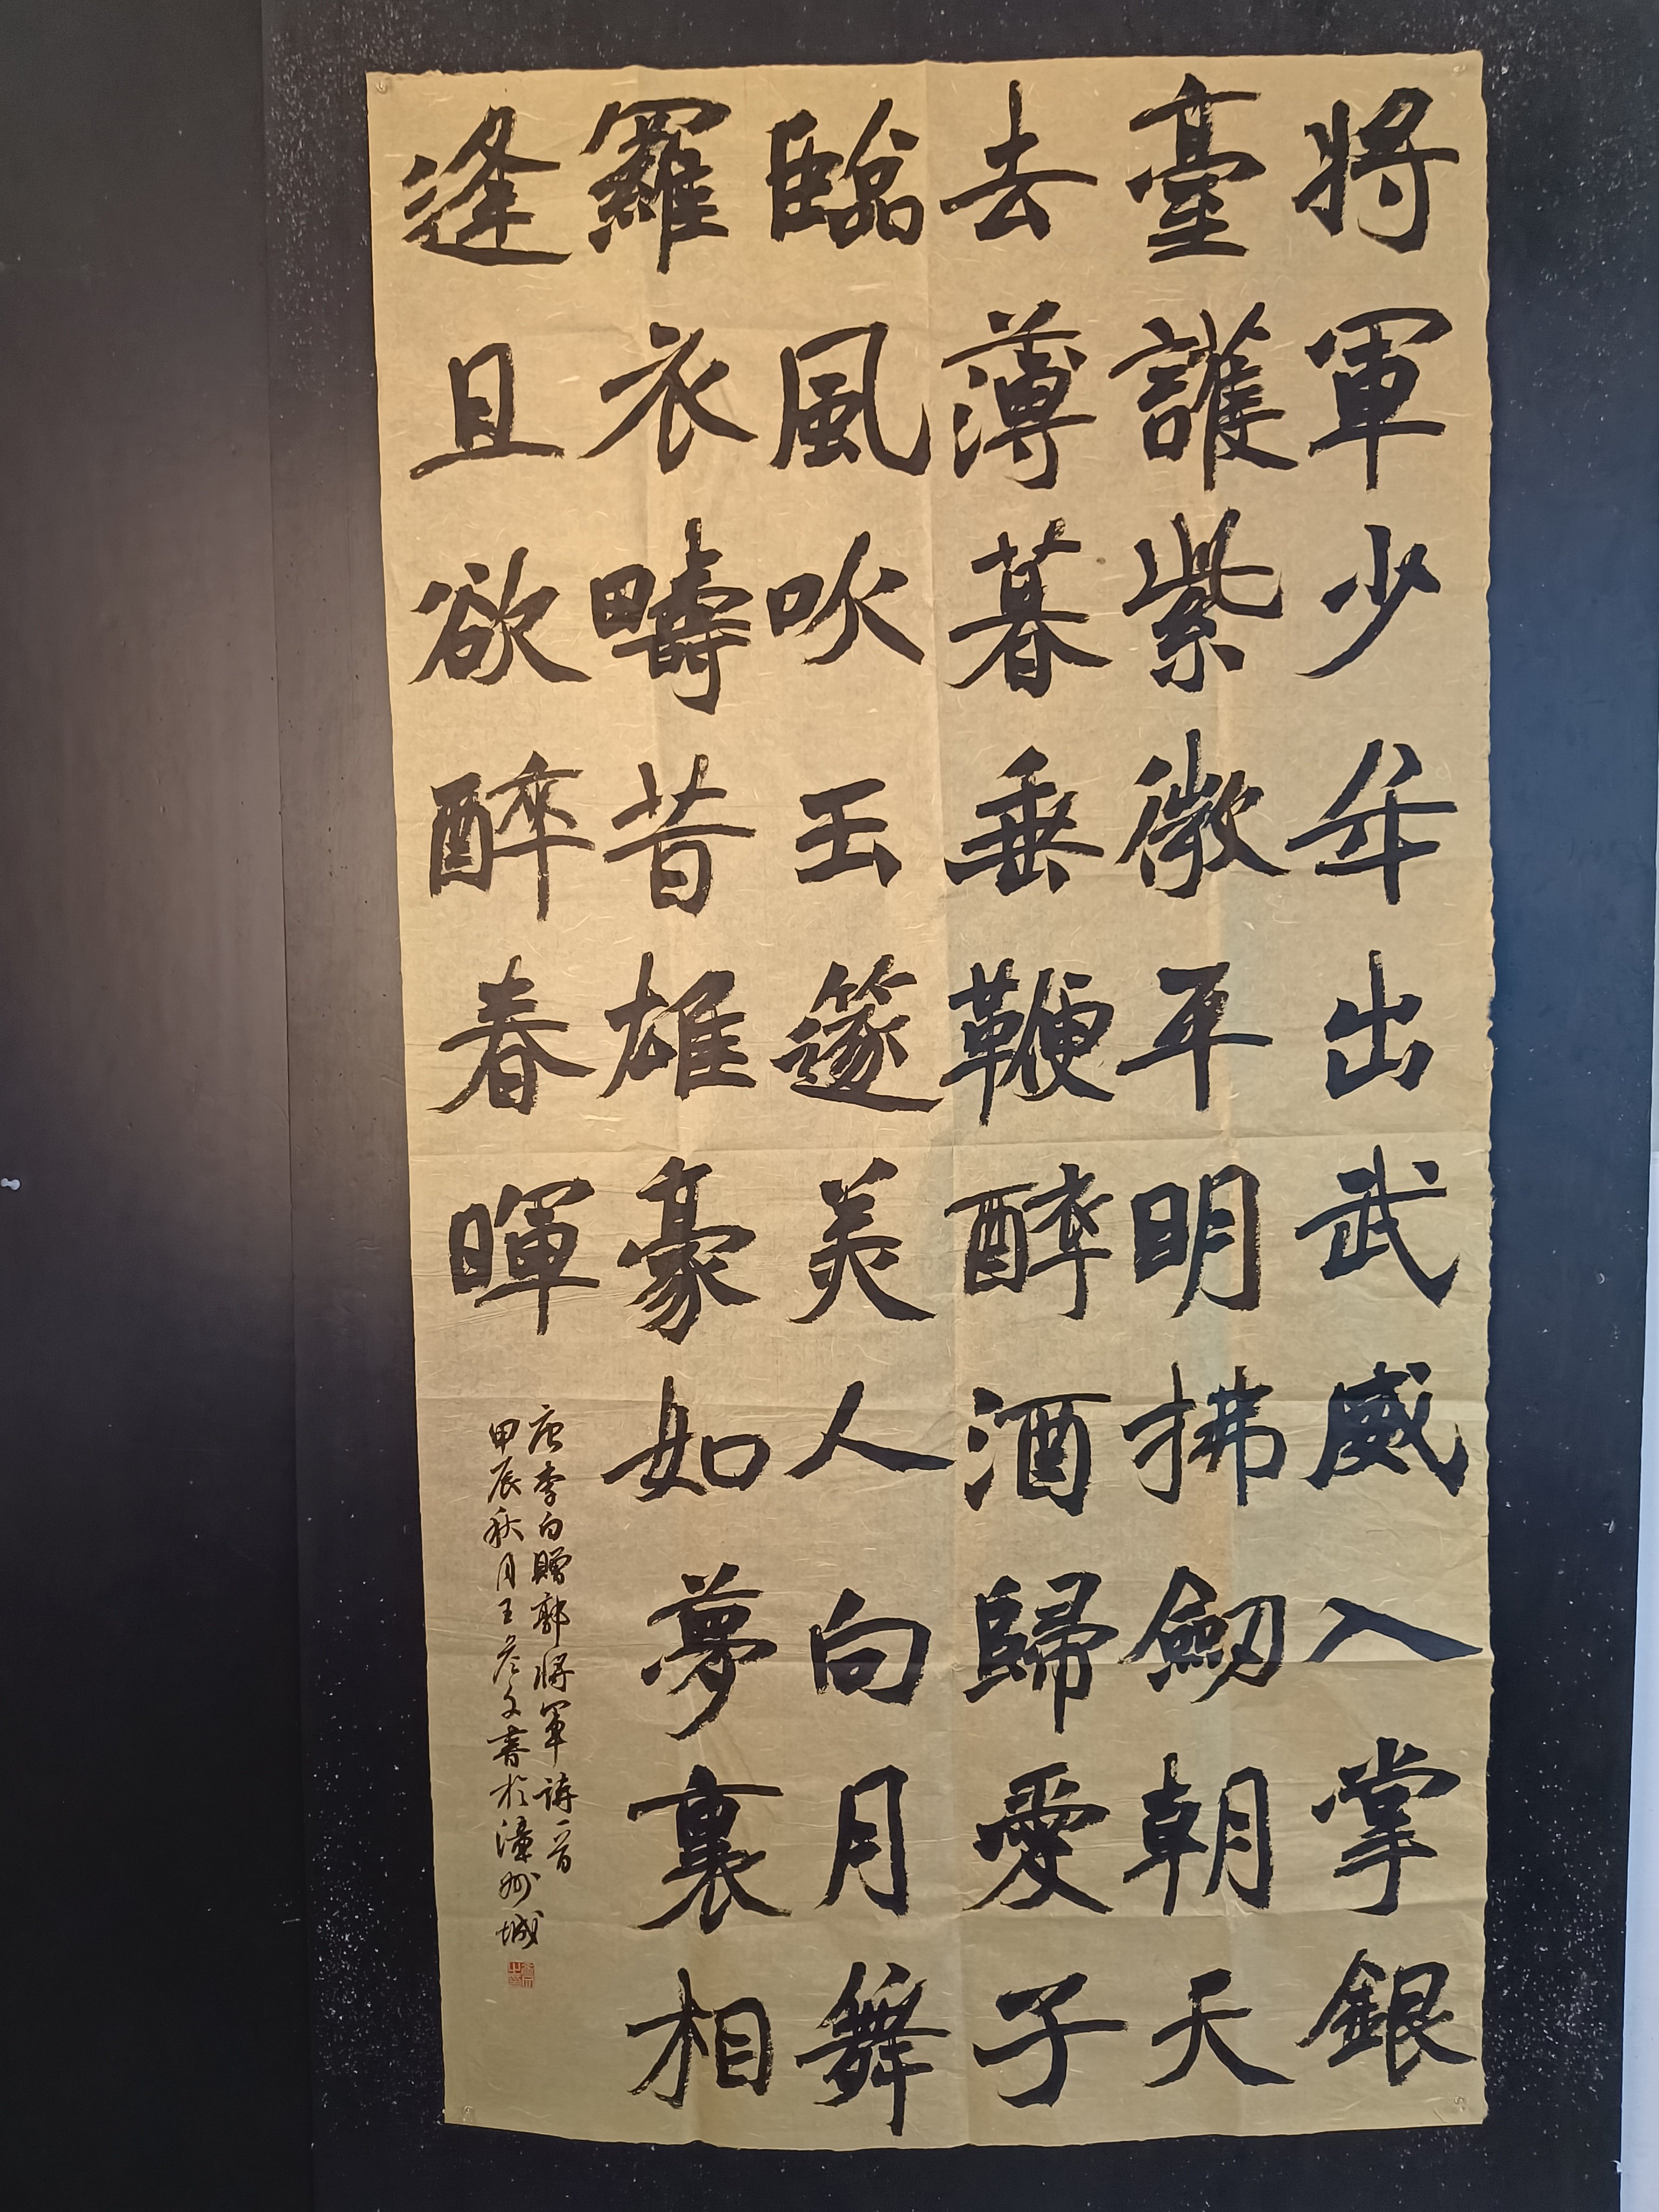 將軍少年出武威入掌銀
臺護紫微平明拂劒朝天
去薄暮垂鞭醉酒歸愛子
臨風吹玉篴美人向月舞
羅衣疇昔雄豪如夢裏相
逢且欲醉春暉
唐李白贈郭將軍詩一首
甲辰秋月王彦文書於漳州城